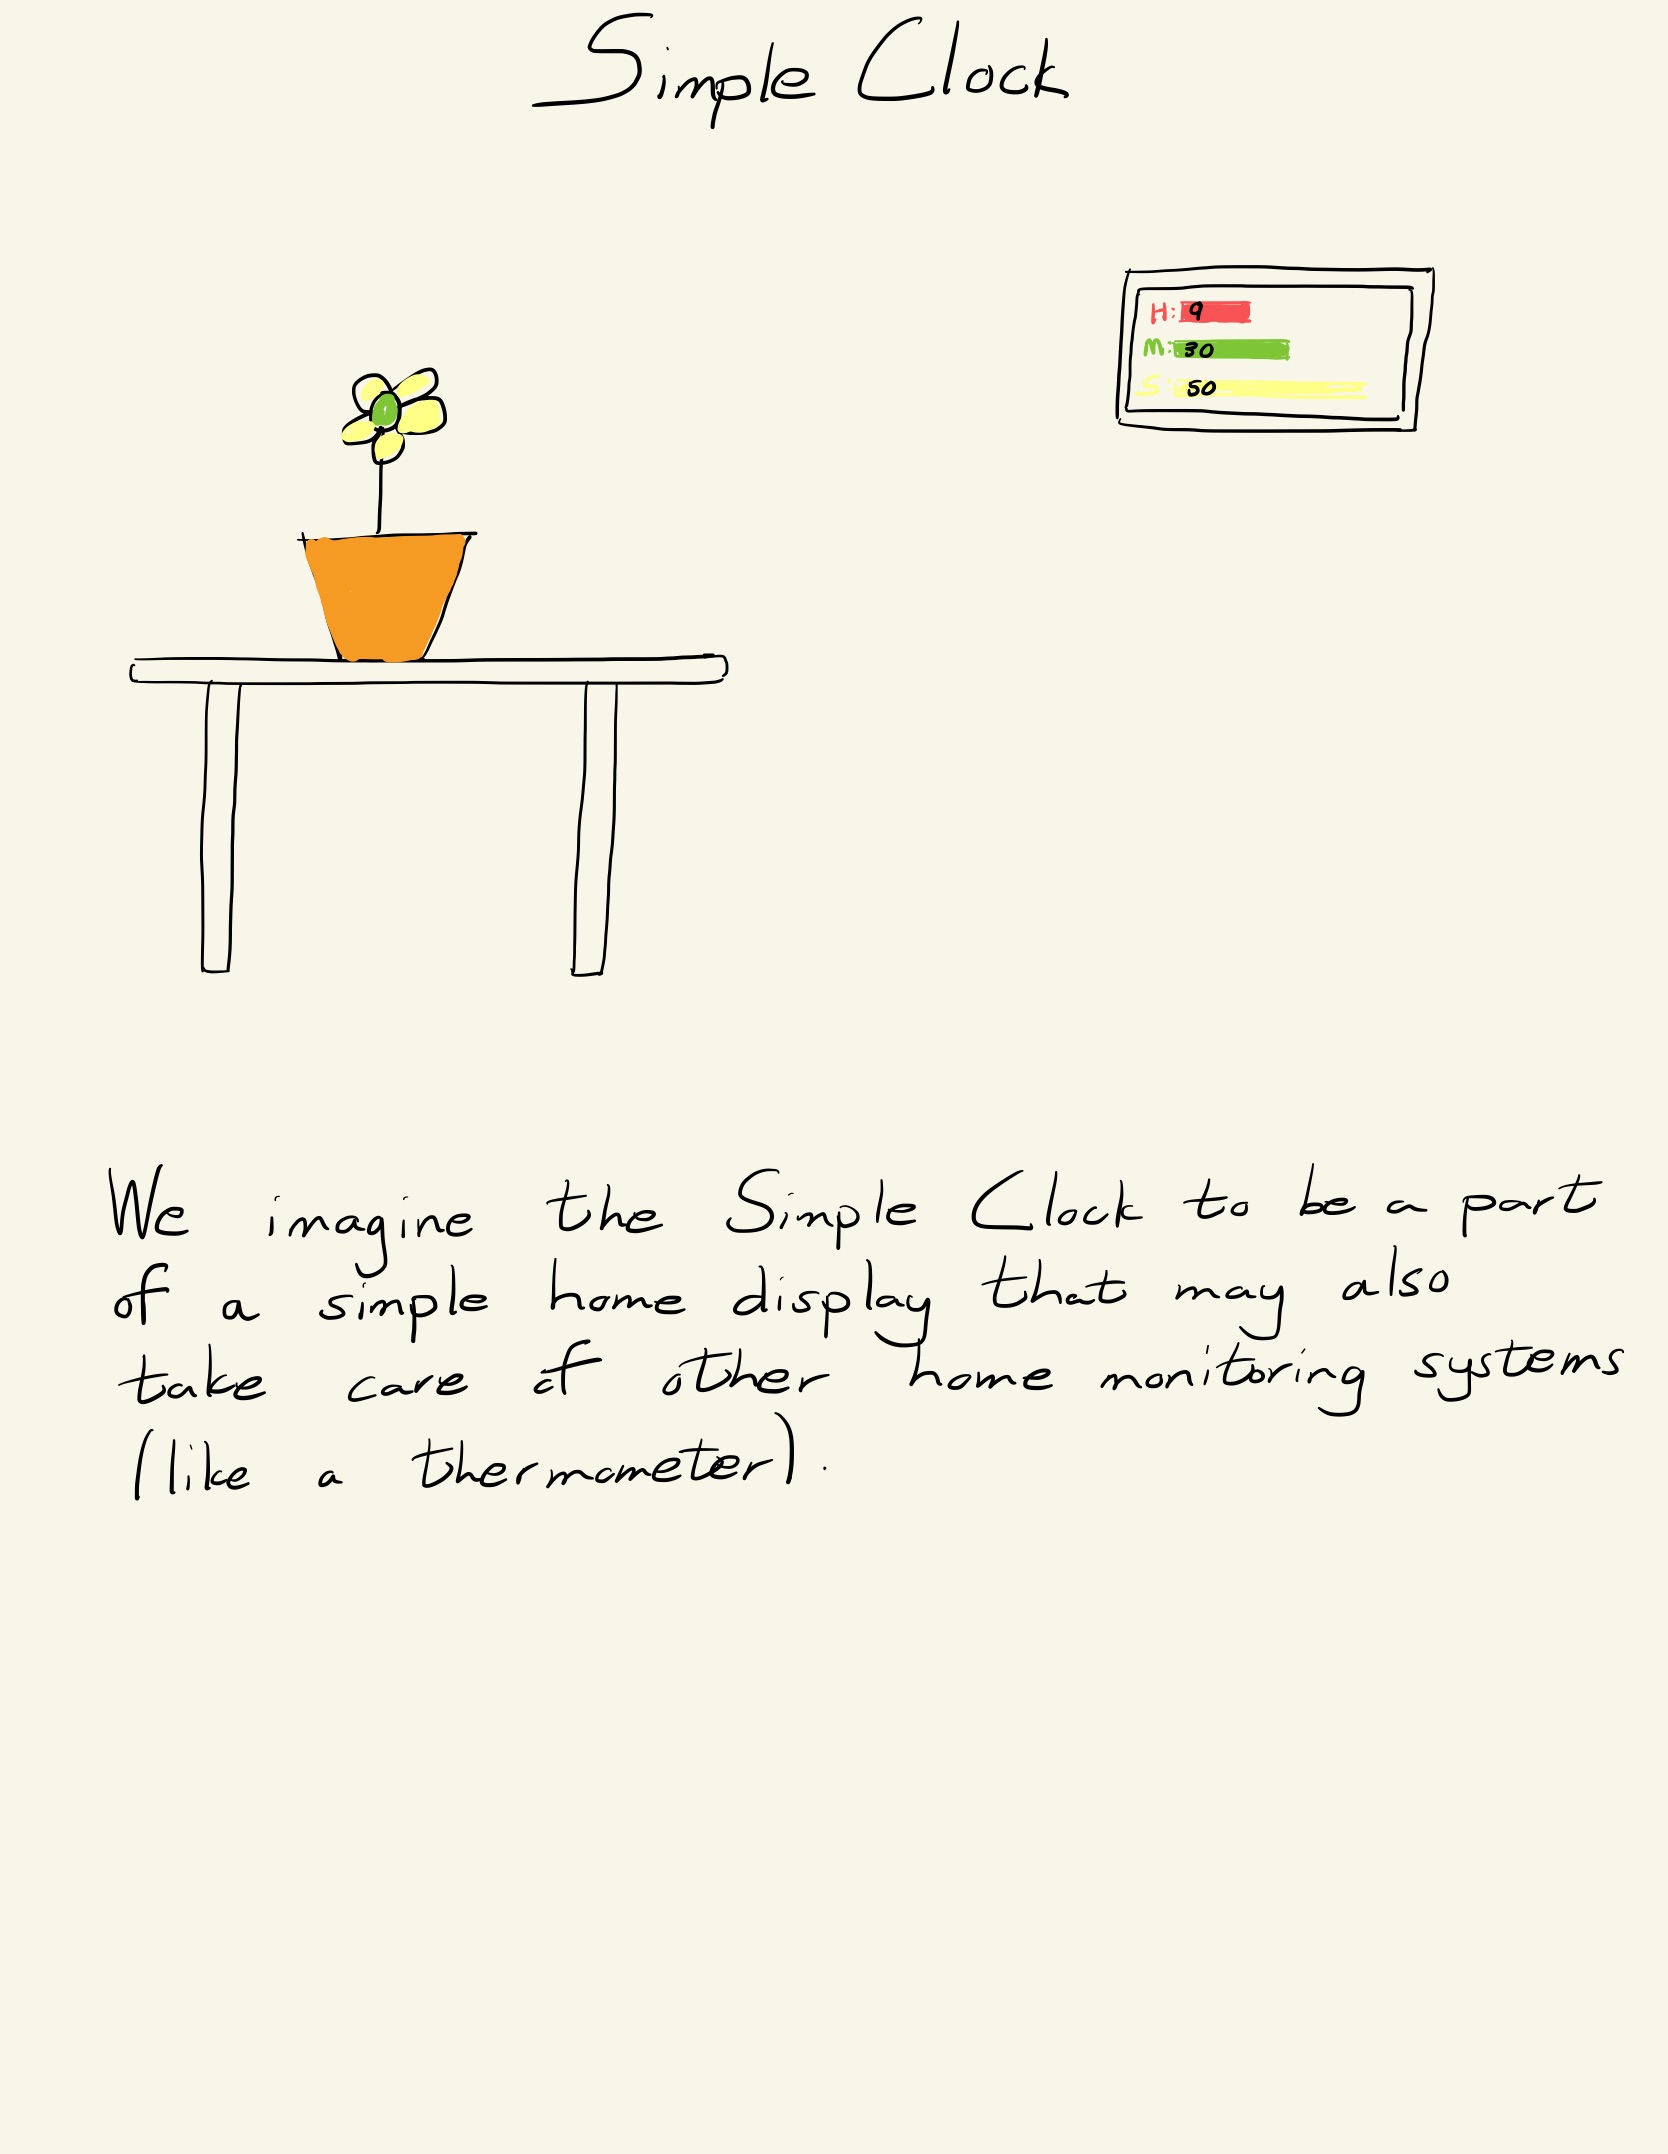 Simple Clock
H: 9
M: 30
S: 50
We imagine the Simple Clock to be a part
of a simple home display that may also
take care of other home monitoring systems
(like a thermometer).